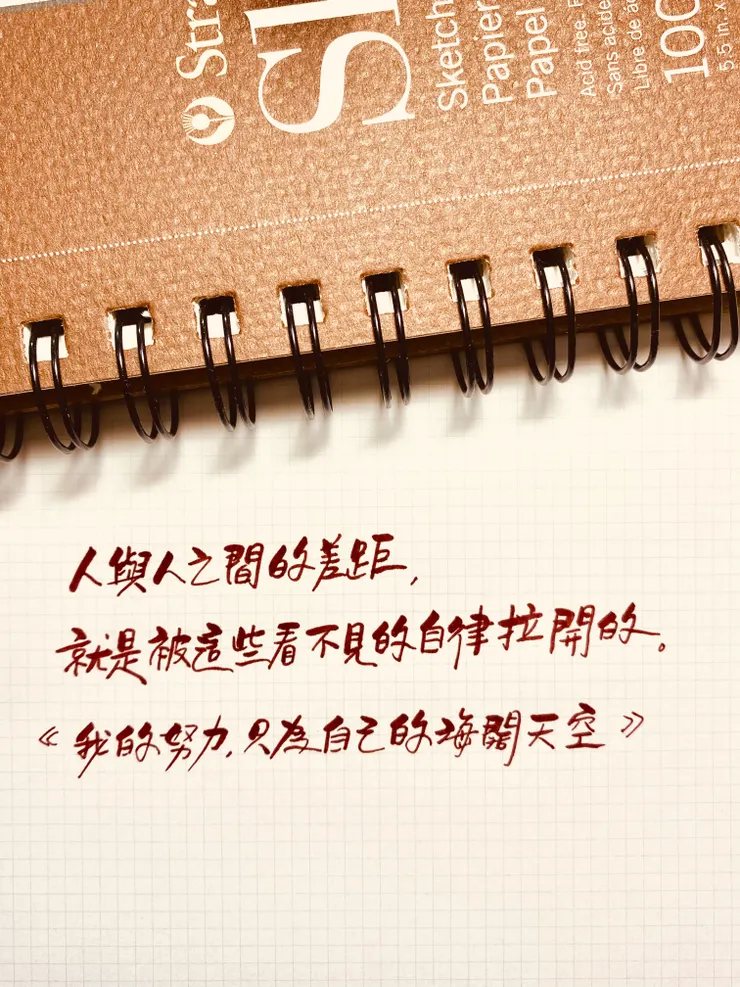 Stra
Sk
Sketch
Papier
Papel
Acid free.
Sans acide
Libre de ác
100
5.5 in. x
人與人之間的差距,
就是被這些看不見的自律拉開的。
《我的努力,只為自己的海闊天空》